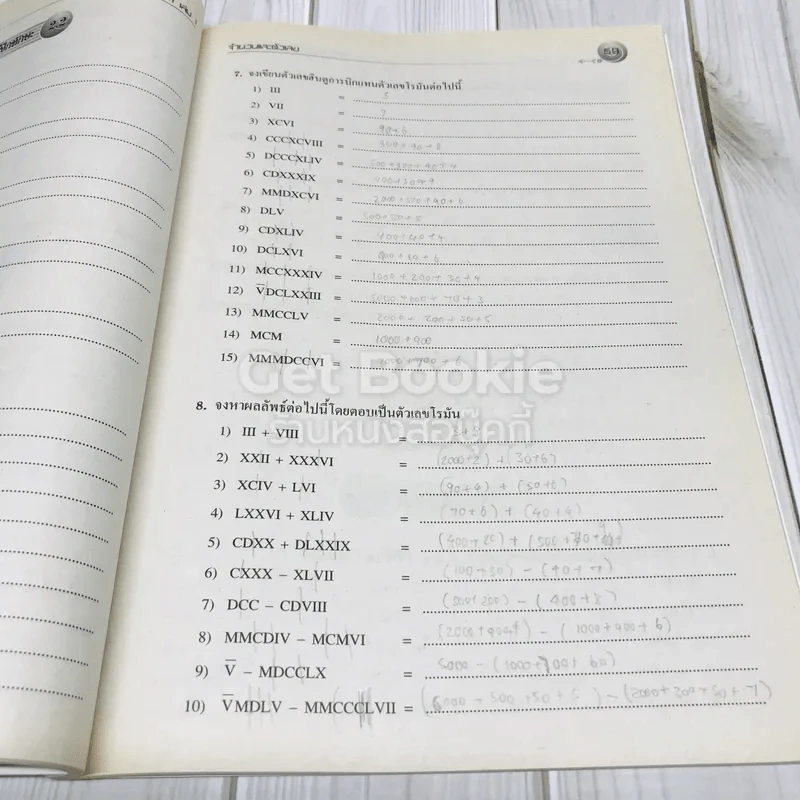 2.2
จำนวนและตัวเลข 59
7. จงเขียนตัวเลขฮินดูอารบิกแทนตัวเลขโรมันต่อไปนี้
1) III = 3
2) VII = 7
3) XCVI = 90+6
4) CCCXCVIII = 300+90+8
5) DCCCXLIV = 500+300+40+4
6) CDXXXIX = 400+30+9
7) MMDXCVI = 2000+500+90+6
8) DLV = 500+50+5
9) CDXLIV = 400+40+4
10) DCLXVI =
11) MCCXXXIV = 1000+200+30+4
12) V̅DCLXXIII =
13) MMCCLV = 2000+200+50+5
14) MCM = 1000+900
15) MMMDCCVI =
Get Bookie
ร้านหนังสือบุ๊คกี้
8. จงหาผลลัพธ์ต่อไปนี้โดยตอบเป็นตัวเลขโรมัน
1) III + VIII =
2) XXII + XXXVI = (30+6)
3) XCIV + LVI = (90+4) + (50+6)
4) LXXVI + XLIV = (70+6) + (40+4)
5) CDXX + DLXXIX = (400+20) +
6) CXXX – XLVII = (100+30) – (40+7)
7) DCC – CDVIII = (500+200) – (400+8)
8) MMCDIV – MCMVI = – (1000+900+6)
9) V̅ – MDCCLX = 5000 –
10) V̅MDLV – MMCCCLVII =